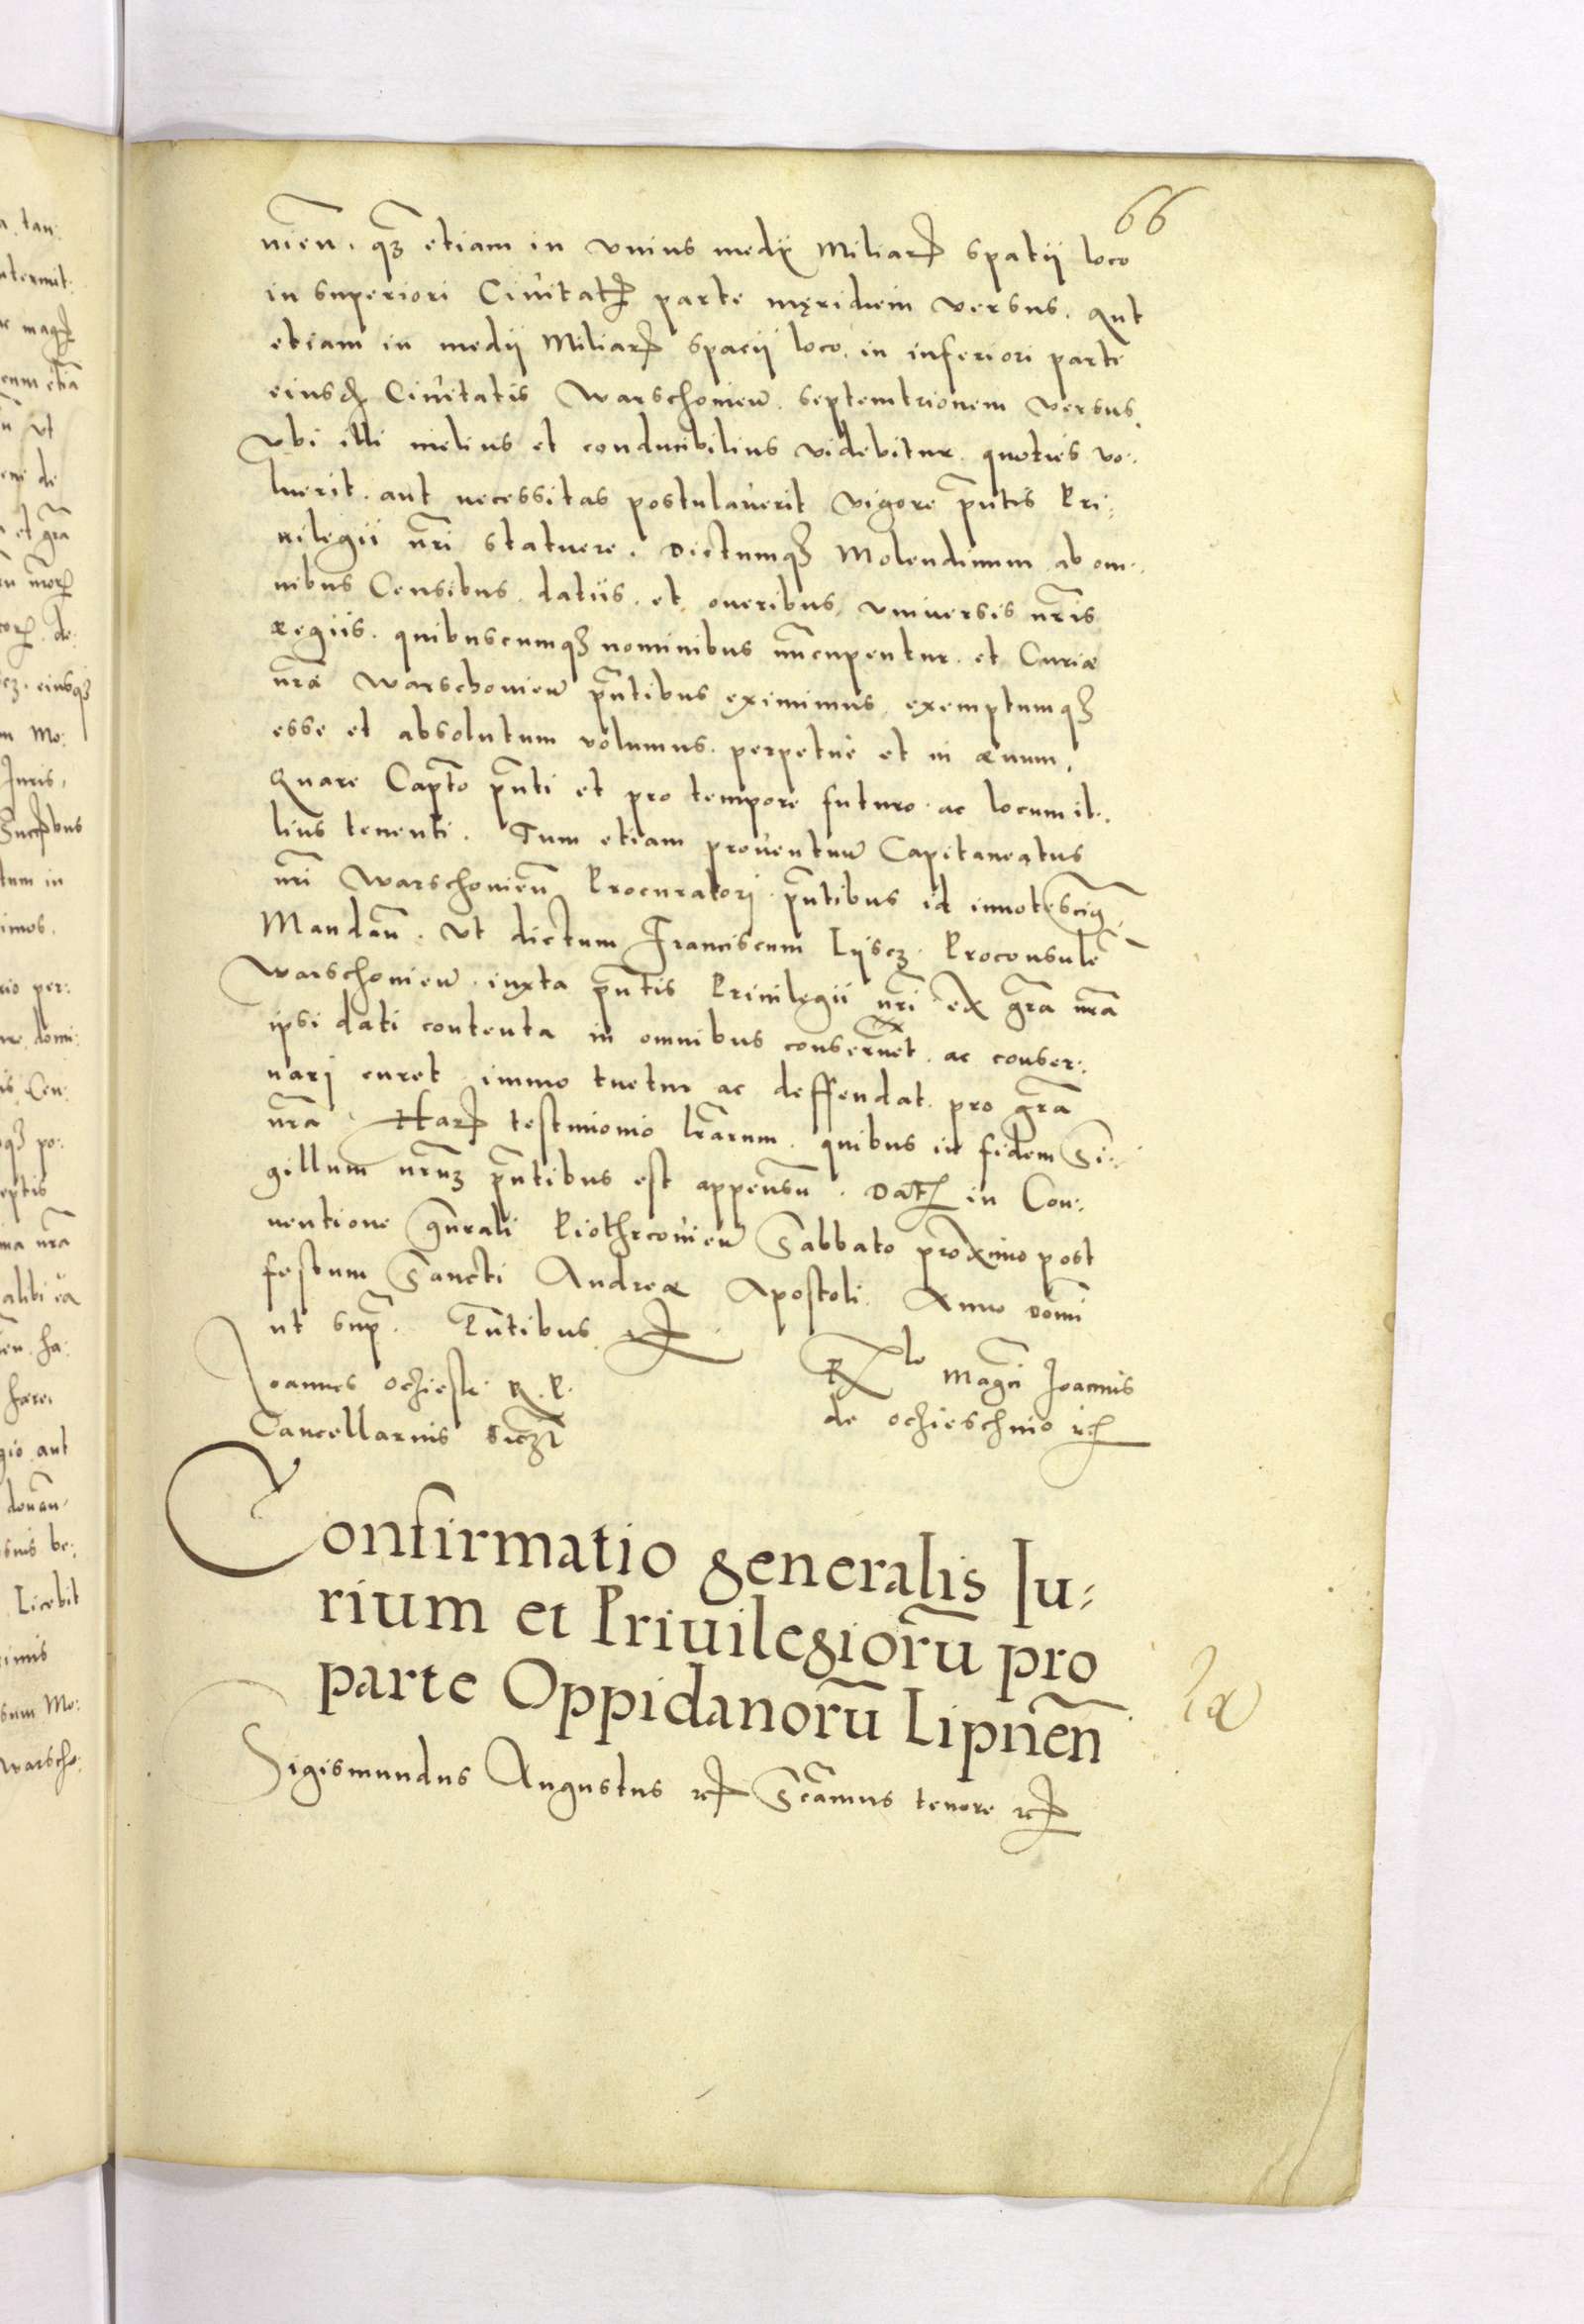 66
nien̄. qȝ etiam in vnius medij Miliarꝭ spatij loco
in superiori Ciuitatꝭ parte męridiem versus. aut
etiam in medij Miliarꝭ spacij loco in inferiori parte
eiusꝗ Ciuitatis Warschonien̄. septemtrionem versus.
vbi illi melius et conducibilius videbitur. quoties vo:
luerit. aut necessitas postulauerit vigore p̄ntis Pri:
uilegii nr̄i statuere. Dictumqȝ Molendinum ab om:
nibus Censibus. datiis. et oneribus vniuersis nr̄is
regiis. quibuscumqȝ nominibus nūcupentur. et Curiæ
nr̄æ Warschonien̄ p̄ntibus eximimus, exemptumqȝ
esse et absolutum volumus. perpetuè et in æuum.
Quare Capt̄o p̄nti et pro tempore futuro. ac locum il:
lius tenenti. Tum etiam prouentuū Capitaneatus
nr̄i Warschonien̄ Procuratorj. p̄ntibus id innotescen̄.
Mandan̄. Vt dictum Franciscum Lijscz. Proconsulē
Warschonien̄. iuxta p̄ntis Priuilegii nr̄i ex gr̄a nr̄a
ipsi dati contenta in omnibus conseruet. ac conser:
uarj curet. immo tuetur ac deffendat. pro gr̄a
nr̄a. Harꝭ testimonio lr̄arum. quibus in fidem Si:
gillum nr̄uȝ p̄ntibus est appensū. Datꝭ in Con:
uentione gn̄rali Piothrcouien̄ Sabbato proximo post
festum Sancti Andreæ Apostoli. Anno Domī
ut sup̄. P̄ntibus ꝛcꝭ
Joannes Oczieski. R. P.
Cancellarius sszt
Rlo Magci Joannis
de Oczieschino ꝛcꝭ
Confirmatio generalis Iu:
rium et Priuilegiorū pro
parte Oppidanorū Lipnen̄
Sigismundus Augustus ꝛcꝭ Sc̄amus tenore ꝛcꝭ